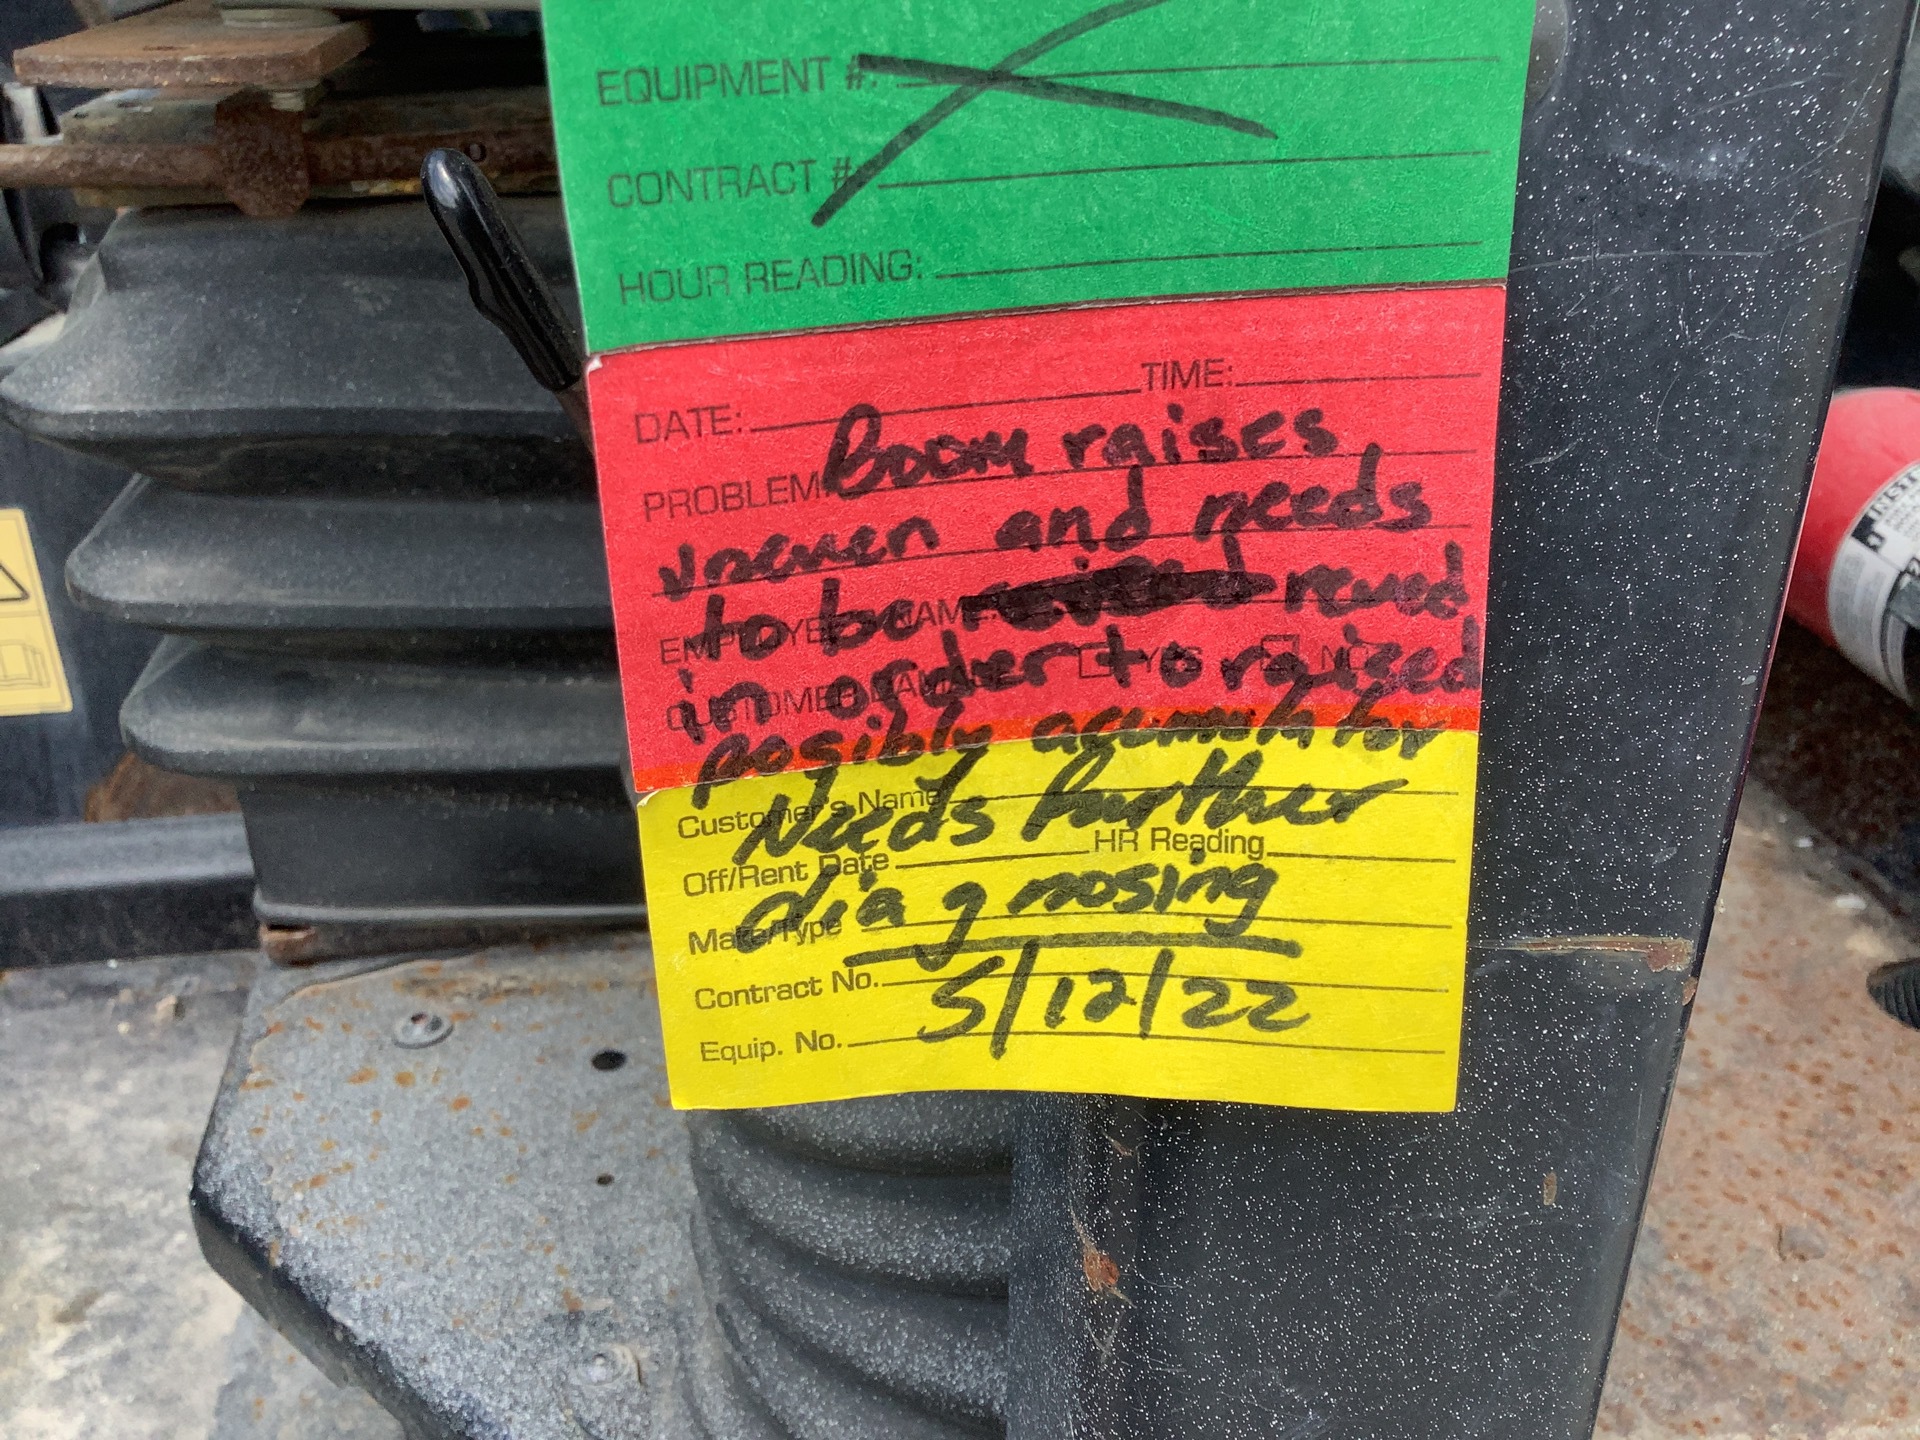 EQUIPMENT #:
CONTRACT #:
HOUR READING:
DATE: TIME:
PROBLEM: Boom raises
unewen and needs
to be revved
EMPLOYEE NAME:
in order to raised
CUSTOMER DAMAGE: YES NO
posibly acumulator
Customer's Name
Needs further
Off/Rent Date HR Reading
diagnosing
Make/Type
Contract No.
5/12/22
Equip. No.